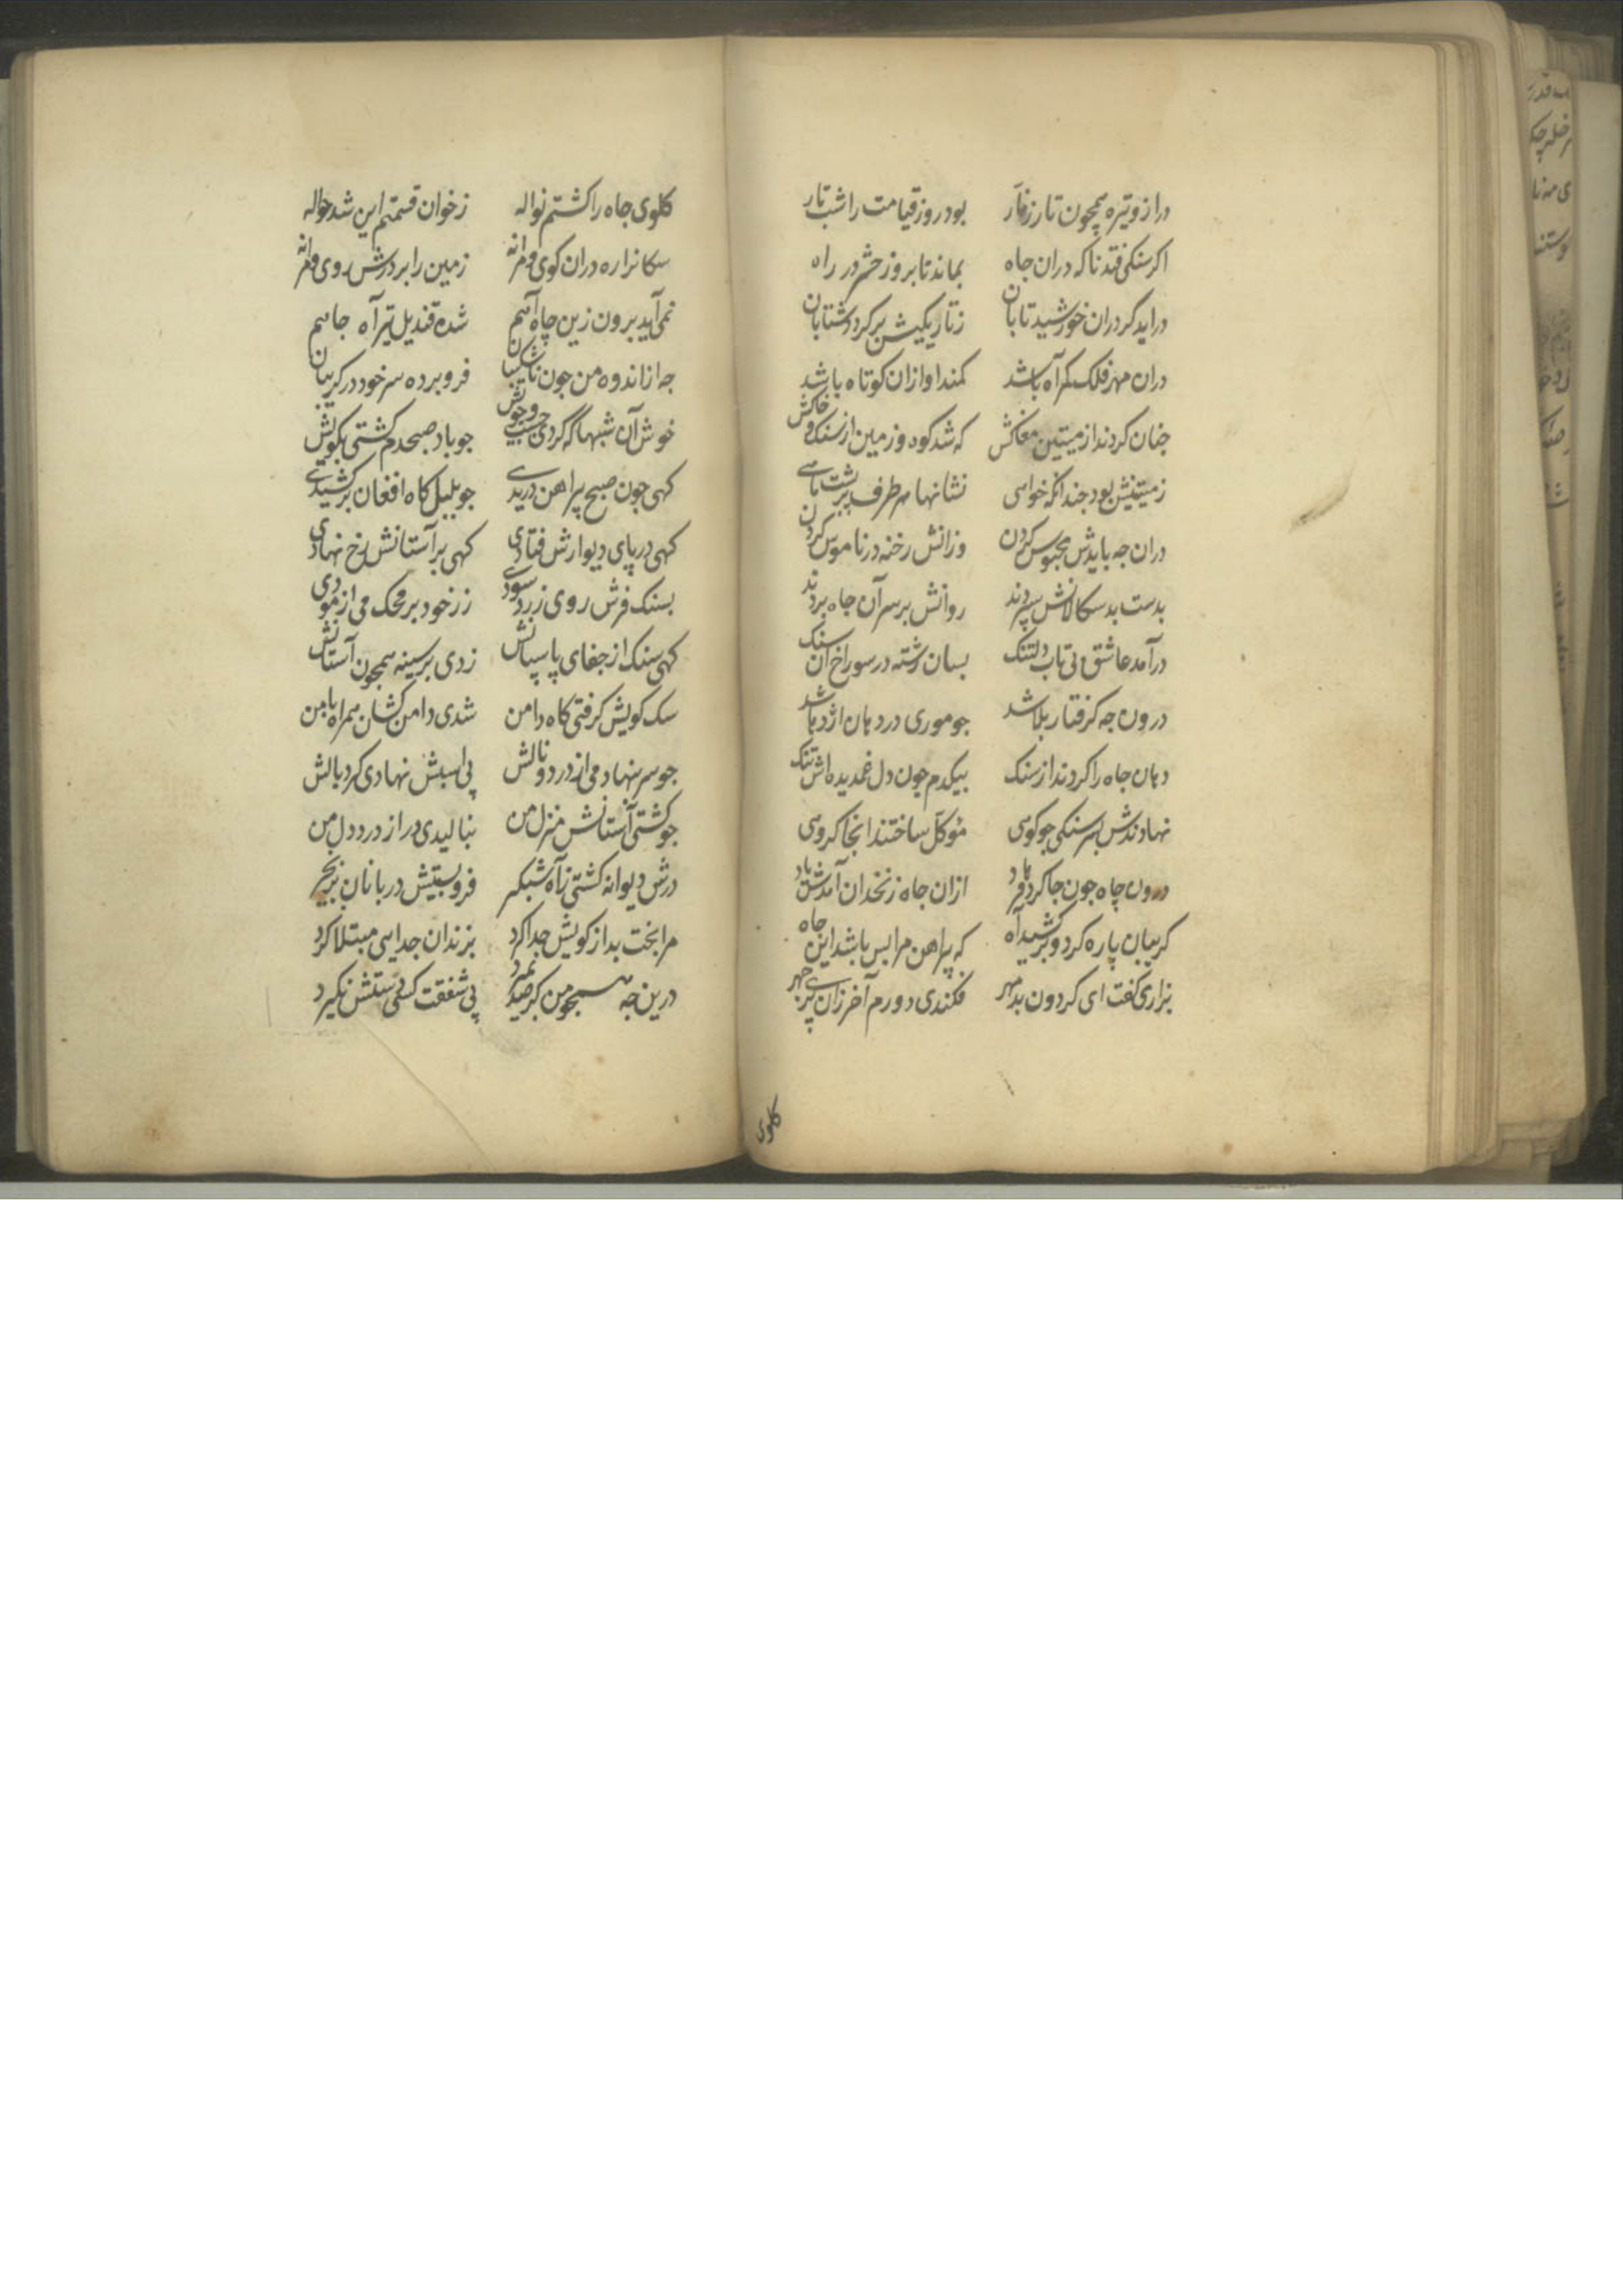 دراز و تیره همچون تار زنار بود روز قیامت را شب تار
اکر سنکی فتد ناکه دران جاه بماند تا بروز حشر در راه
دراید کر دران خورشید تابان ز تاریکیش برکردد شتابان
دران مهر فلک کمراه باشد کمند او ازان کوتاه باشد
جنان کردند از میتین مغاکش که شد کوه و زمین از سنک و خاکش
ز میتینش بود جندانکه خواهی نشانها هر طرف بر پشت ماهی
دران جه بایدش محبوس کردن وزانش رخنه در ناموس کردن
بدست بدسکالانش سپردند روانش بر سر آن جاه بردند
درآمد عاشق بی تاب دلتنک بسان رشته در سوراخ آن سنک
درون جه کرفتار بلا شد جو موری در دهان اژدها شد
دهان جاه را کردند از سنک بیکدم چون دل غمدیده اش تنک
نهادندش بسر سنکی جو کوهی موکل ساختند انجا کروهی
درون چاه جون جا کرد فرهاد ازان جاه زنخدان آمدش یاد
کریبان پاره کرد و برکشید آه که پیراهن مرا بس باشد این جاه
بزاری کفت ای کردون بدمهر فکندی دورم آخر زان پری جهر
کلوی
کلوی جاه را کشتم نواله ز خوان قسمتم این شد حواله
سکانرا ره دران کوی و مرا نه زمین را بر درش روی و مرا نه
نمی آید برون زین چاه آهم شده قندیل تیر آه جاهم
جه از اندوه من جون ناشکیبان فرو برده سر خود در کریبان
خوش آن شبها که کردی جست و جویش جو باد صبحدم کشتی بکویش
کهی جون صبح پیراهن دریدی جو بلبل کاه افغان برکشیدی
کهی در پای دیوارش فتادی کهی بر آستانش رخ نهادی
بسنک فرش روی زرد سودی زر خود بر محک می ازمودی
کهی سنک از جفای پاسبانش زدی بر سینه همجون آستانش
سک کویش کرفتی کاه دامن شدی دامن کشان همراه با من
جو سر بنهادمی از درد و نالش پی اسبش نهادی کرد بالش
جو کشتی آستانش منزل من بنالیدی در از درد دل من
درش دیوانه کشتی ز آه شبکیر فرو بستیش دربانان بزنجیر
مرا بخت بد از کویش جدا کرد بزندان جدایی مبتلا کرد
درین جه همجو من کر صید میرد پی شفقت کسی دستش نکیرد